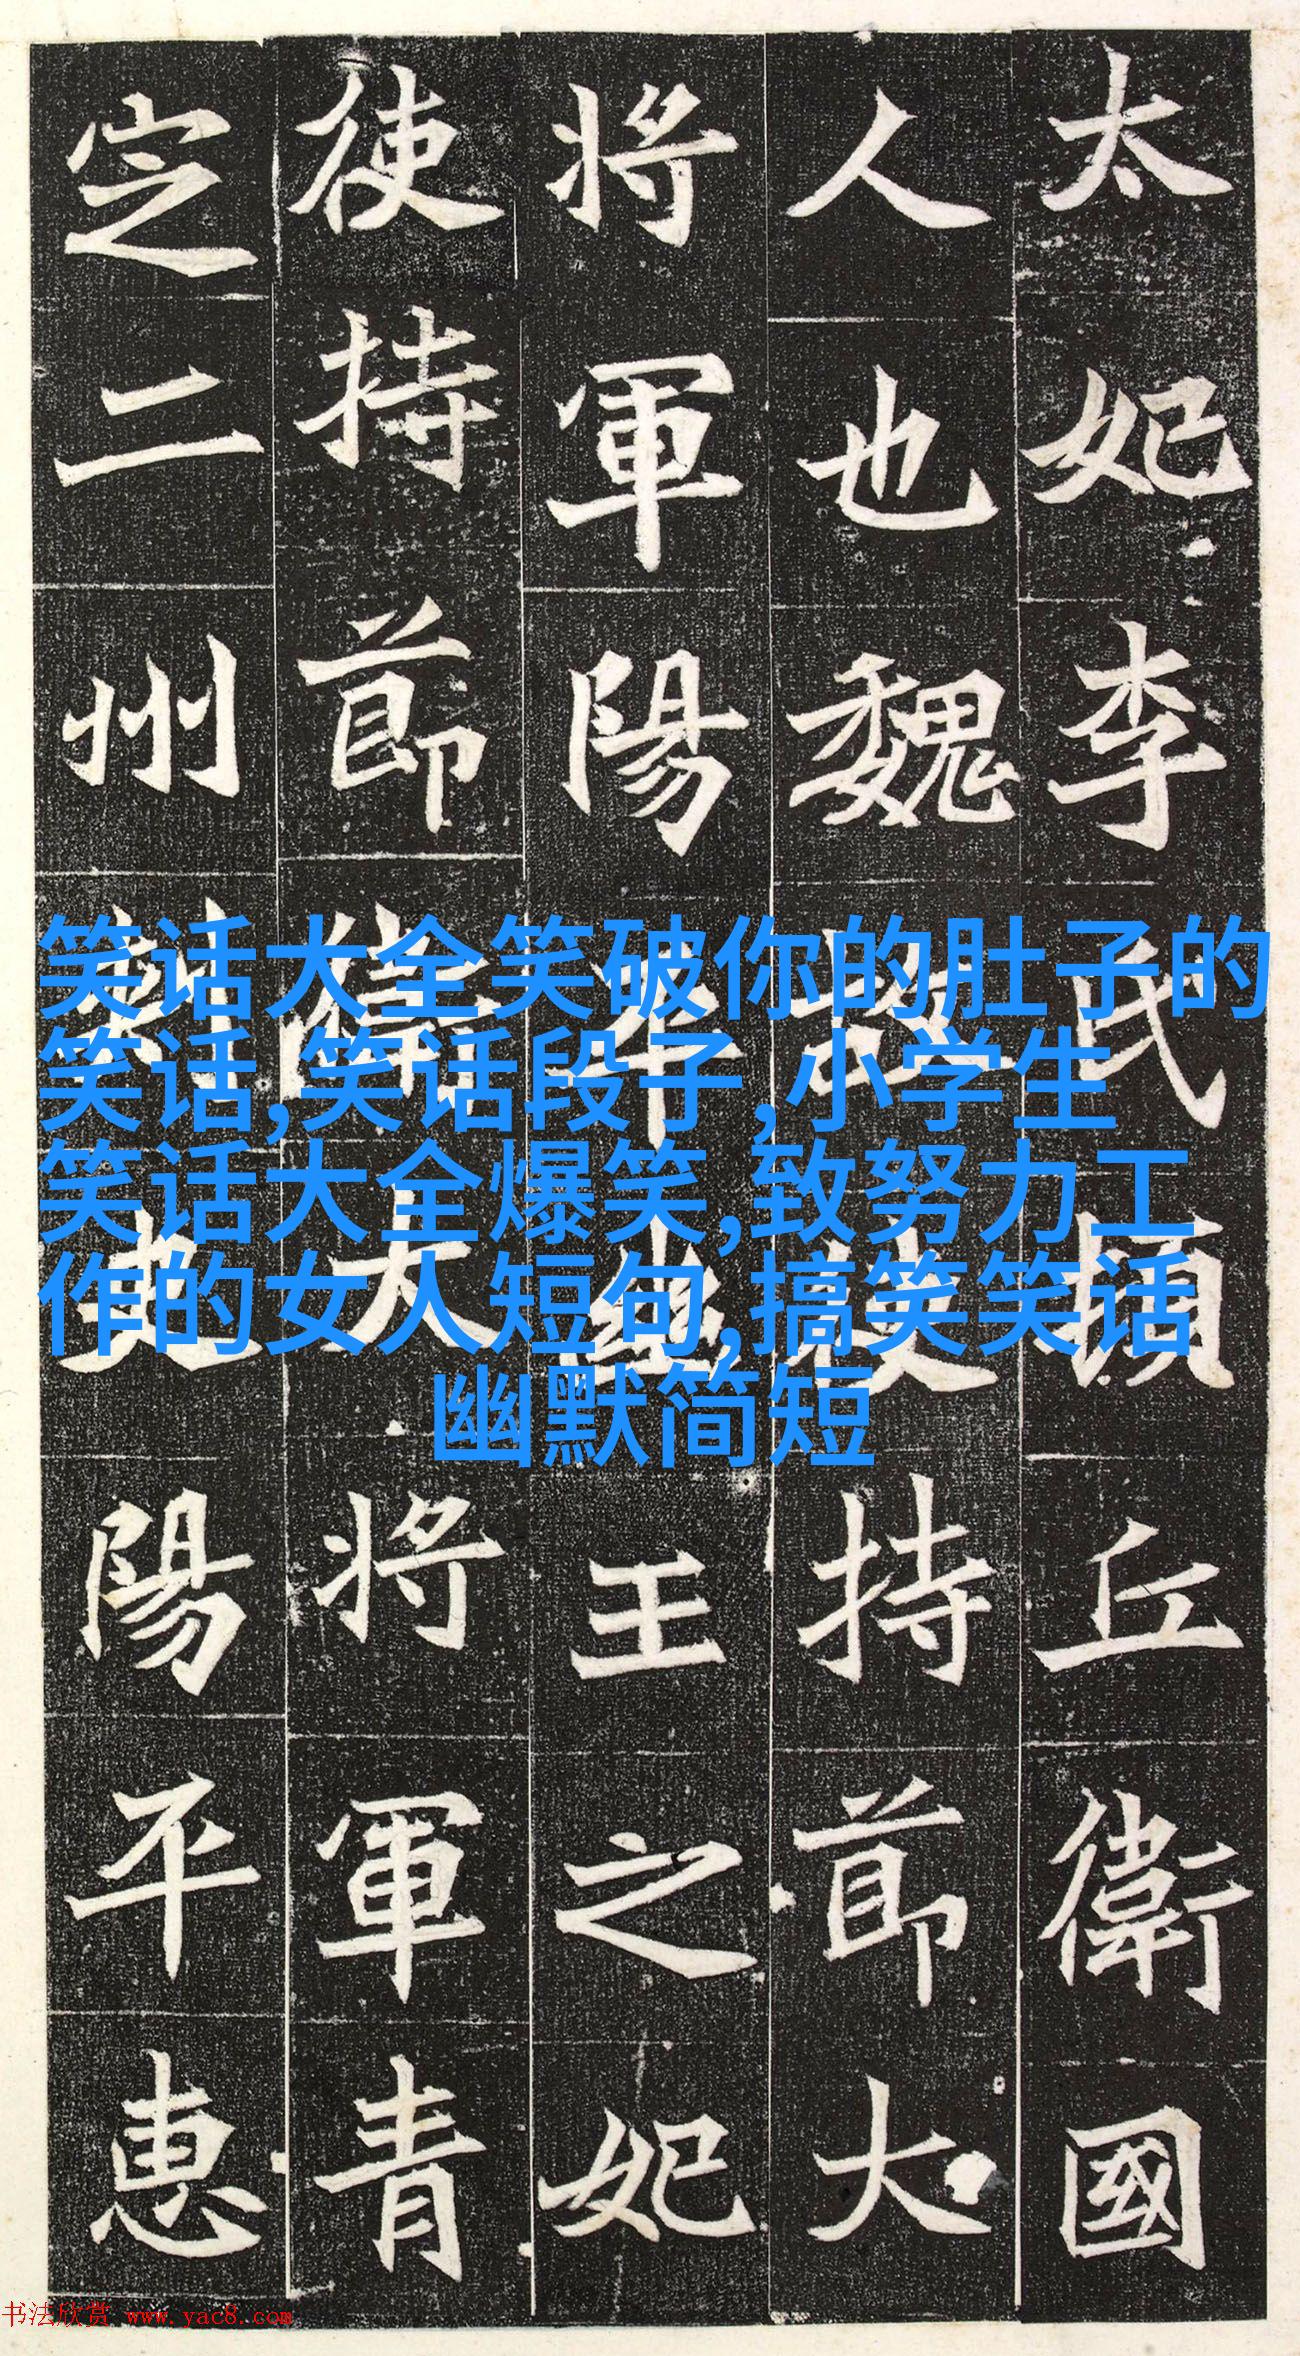 太妃李氏頓丘衛國
人也魏故使持節大
將軍陽平幽王之妃
使持節衛大將軍青
定二州刺史陽平惠
笑话大全笑破你的肚子的
笑话,笑话段子,小学生
笑话大全爆笑,致努力工
作的女人短句,搞笑笑话
幽默简短
书法欣赏 www.yac8.com